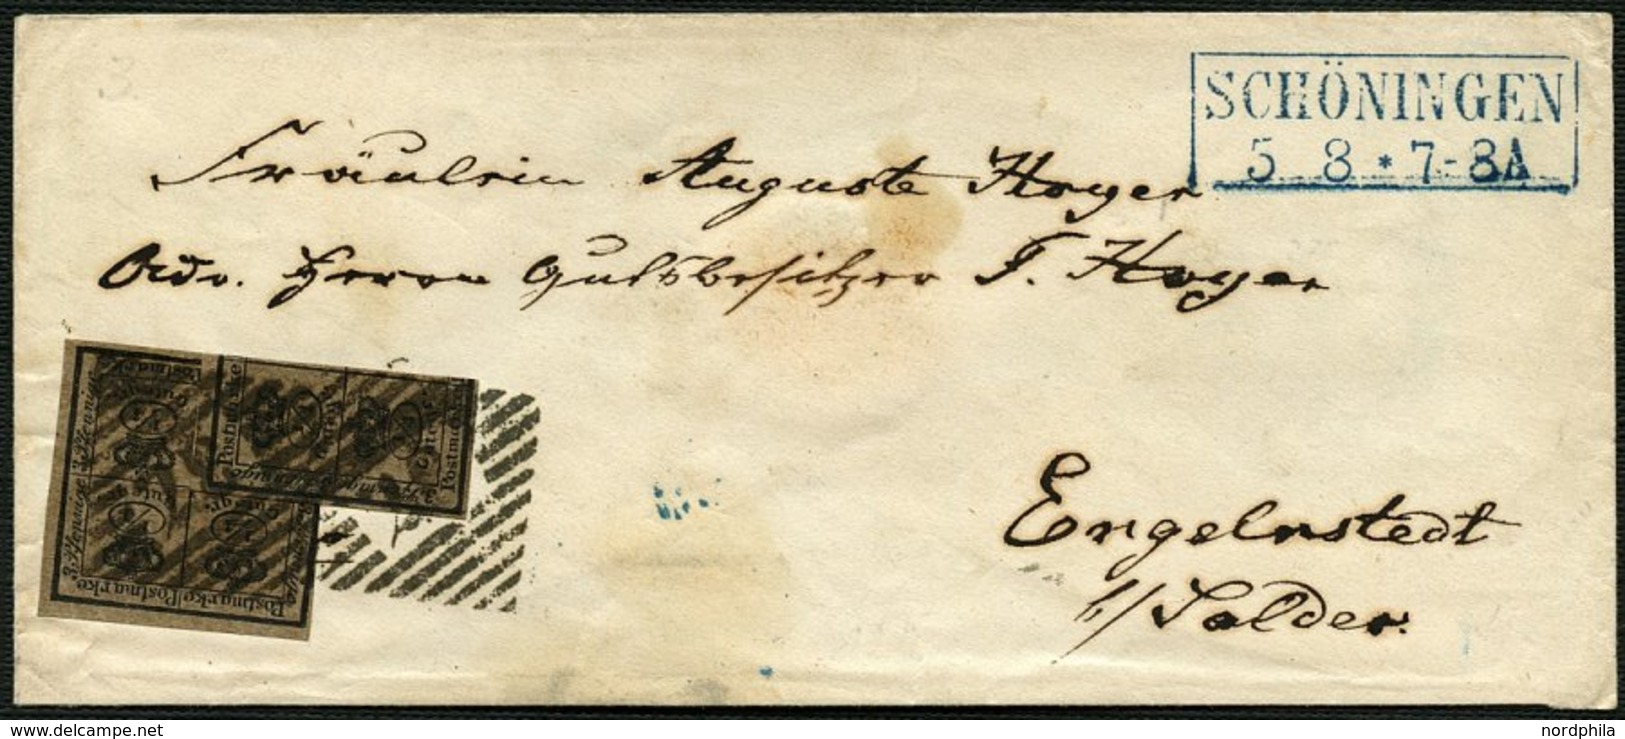 SCHÖNINGEN
5 8 * 7-8A
3.
Fräulein Auguste Hoyer
Adr. Herrn Gutsbesitzer F. Hoyer
Engelnstedt
b/ Salder.
Postmarke
3 Pfennige
3 Pfennige
Postmarke
Postmarke
Postmarke
Postmarke
nordphila